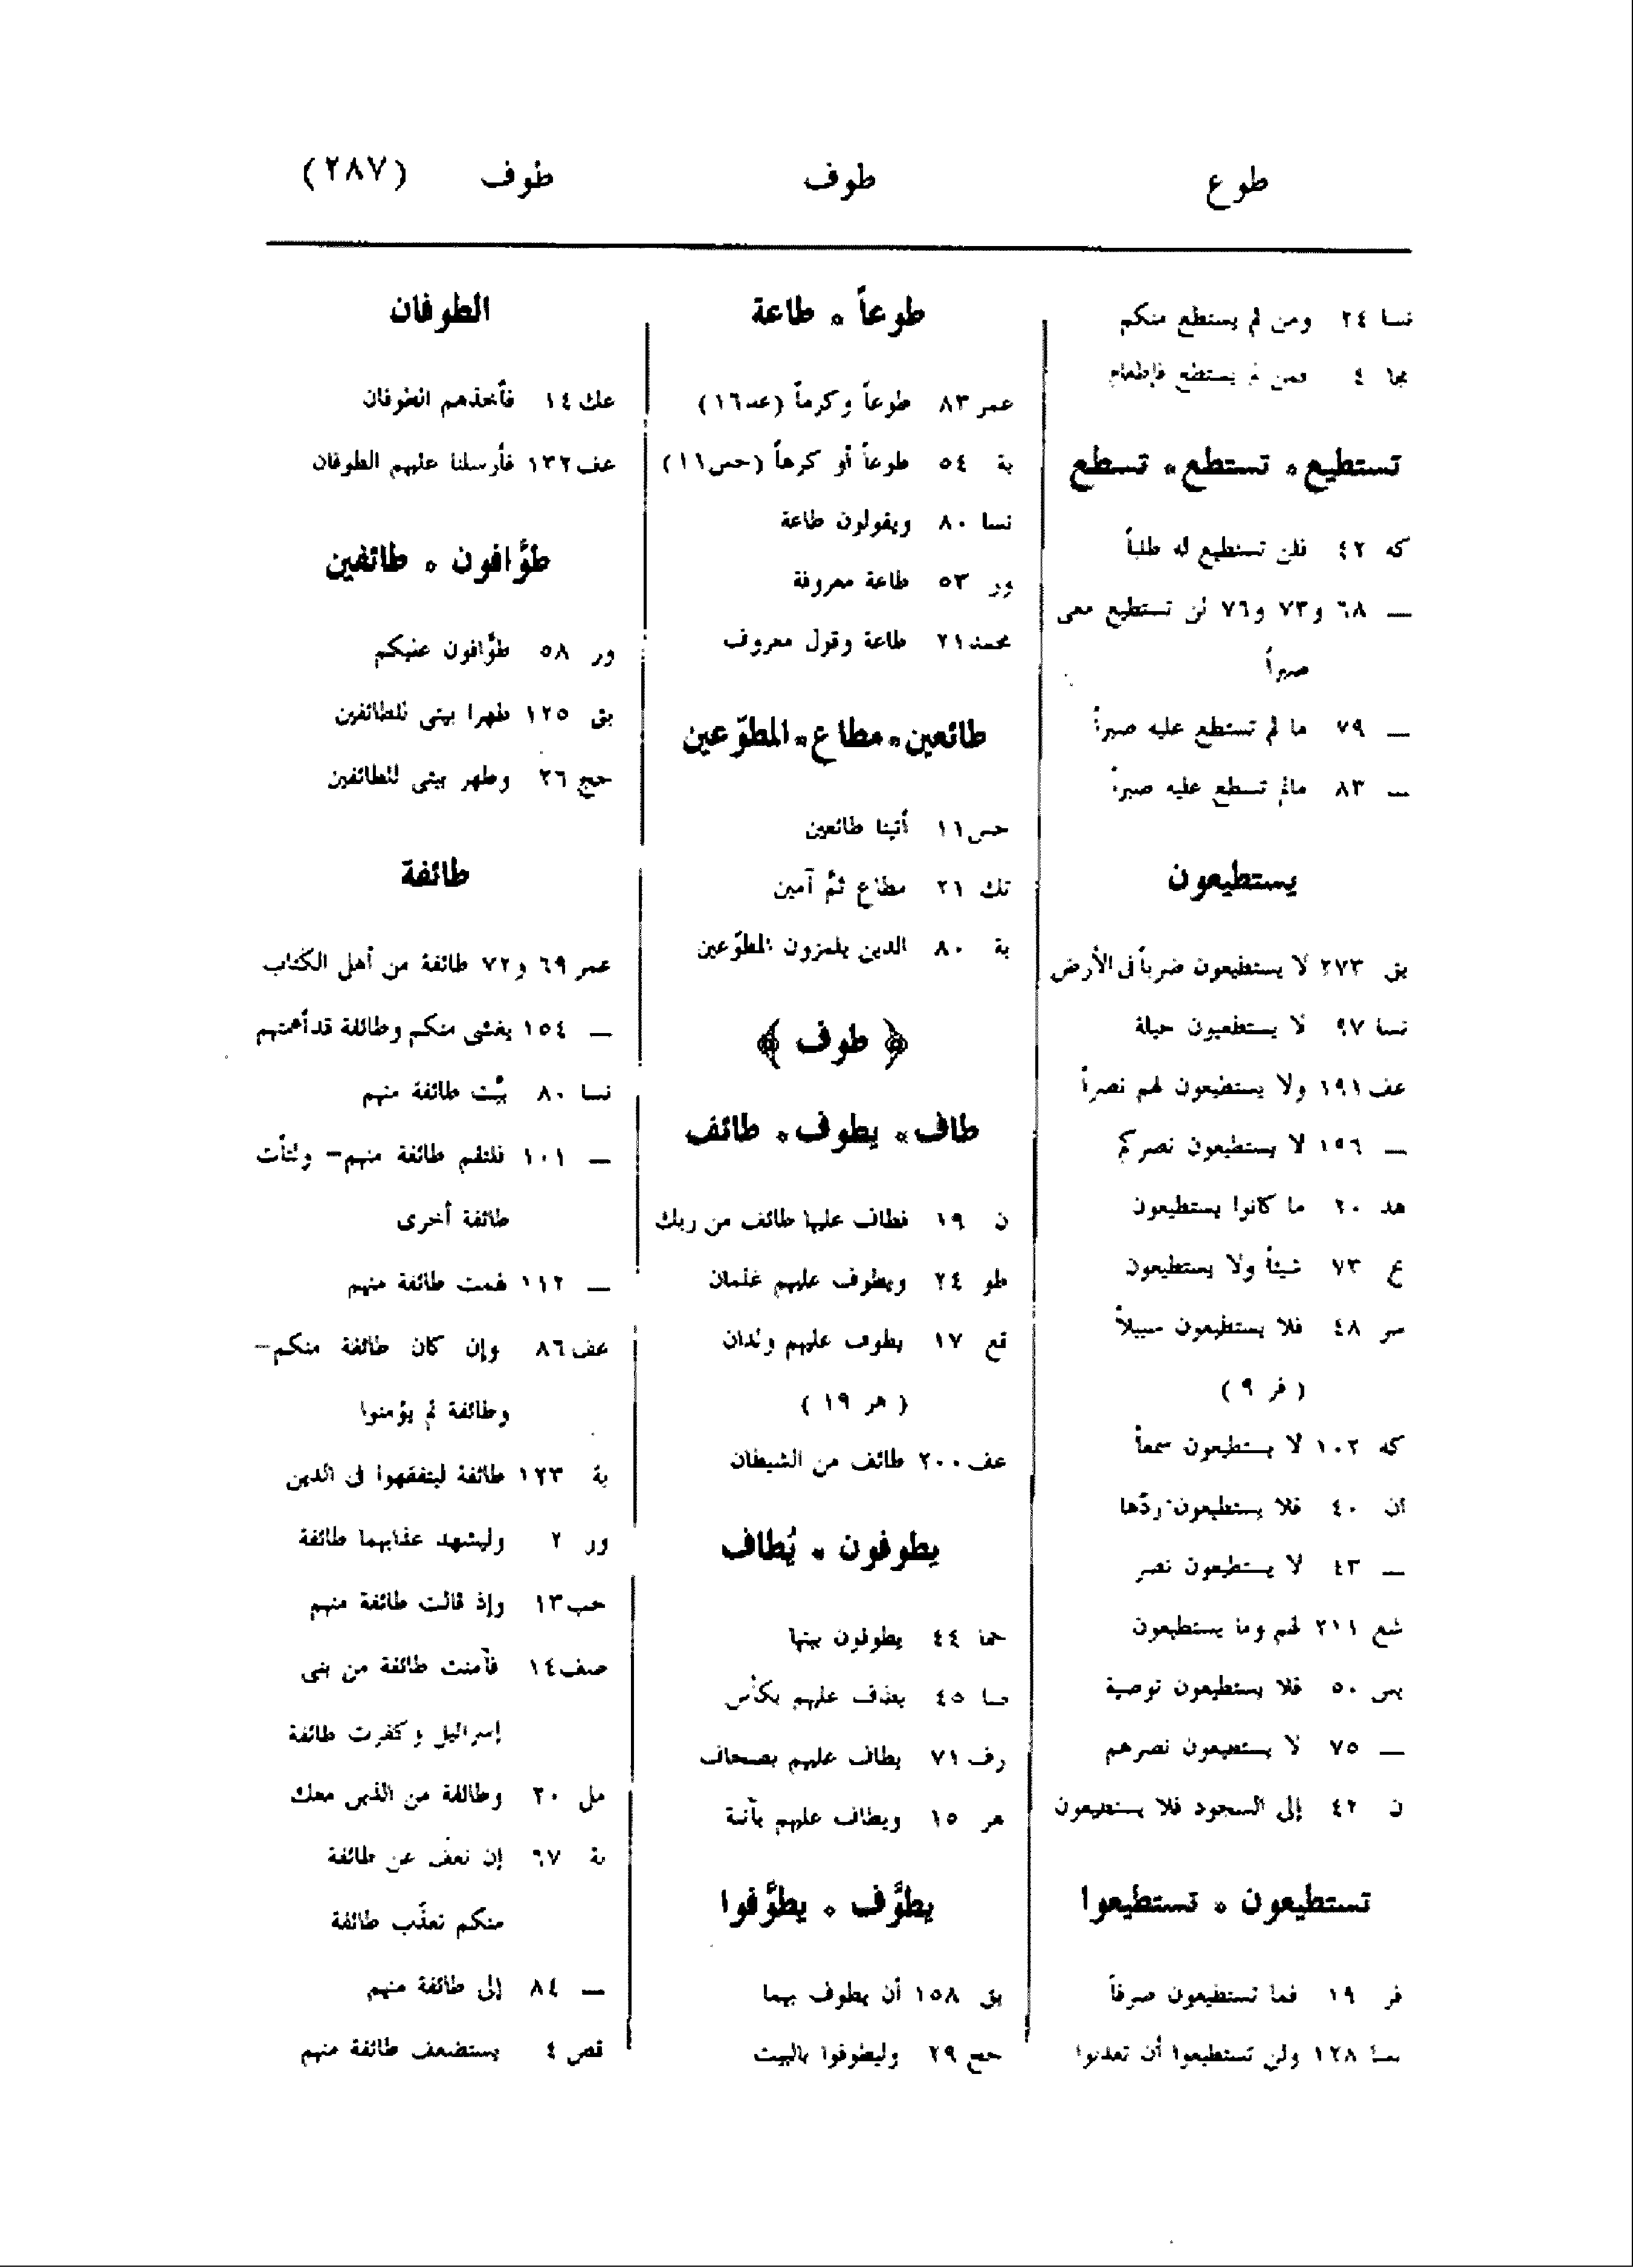 طوع طوف طوف (٢٨٧)
نسا ٢٤ ومن لم يستطع منكم
مجا ٤ فمن لم يستطع فإطعام
تستطيع * تستطع * تسطع
كه ٤٢ فلن تستطيع له طلباً
— ٦٨ و٧٣ و٧٦ لن تستطيع معى
صبراً
— ٧٩ ما لم تستطع عليه صبراً
— ٨٣ مالم تسطع عليه صبراً
يستطيعون
بق ٢٧٣ لا يستطيعون ضرباً فى الأرض
نسا ٩٧ لا يستطعيون حيلة
عف ١٩١ ولا يستطيعون لهم نصراً
— ١٩٦ لا يستطيعون نصركم
هد ٢٠ ما كانوا يستطيعون
ع ٧٣ شيئاً ولا يستطيعون
سر ٤٨ فلا يستطيعون سبيلاً
(فر ٩)
كه ١٠٢ لا يستطيعون سمعاً
ان ٤٠ فلا يستطيعون ردّها
— ٤٣ لا يستطيعون نصر
شع ٢١١ لهم وما يستطيعون
يس ٥٠ فلا يستطيعون توصية
— ٧٥ لا يستطيعون نصرهم
ن ٤٢ إلى السجود فلا يستطيعون
تستطيعون * تستطيعوا
فر ١٩ فما تستطيعون صرفاً
نسا ١٢٨ ولن تستطيعوا أن تعدلوا
طوعاً * طاعة
عمر ٨٣ طوعاً وكرهاً (عد١٦)
بة ٥٤ طوعاً أو كرهاً (حس١١)
نسا ٨٠ ويقولون طاعة
ور ٥٣ طاعة معروفة
محمد ٢١ طاعة وقول معروف
طائعين * مطاع * المطوّعين
حس ١١ أتينا طائعين
تك ٢١ مطاع ثمَّ آمين
بة ٨٠ الذين يلمزون المطوّعين
﴿ طوف ﴾
طاف * يطوف * طائف
ن ١٩ فطاف عليها طائف من ربك
طو ٢٤ ويطوف عليهم غلمان
قع ١٧ يطوف عليهم ولدان
(هر ١٩)
عف ٢٠٠ طائف من الشيطان
يطوفون * يُطاف
حما ٤٤ يطوفون بينها
صا ٤٥ يطاف عليهم بكأس
رف ٧١ يطاف عليهم بصحاف
هر ١٥ ويطاف عليهم بآنية
يطوَّف * يطوَّفوا
بق ١٥٨ أن يطوف بهما
حج ٢٩ وليطوفوا بالبيت
الطوفان
عك ١٤ فأخذهم الطوفان
عف ١٣٢ فأرسلنا عليهم الطوفان
طوَّافون * طائفين
ور ٥٨ طوَّافون عليكم
بق ١٢٥ طهرا بيتى للطائفين
حج ٢٦ وطهر بيتى للطائفين
طائفة
عمر ٦٩ و٧٢ طائفة من أهل الكتاب
— ١٥٤ يغشى منكم وطائفة قد أهمتهم
نسا ٨٠ بيَّت طائفة منهم
— ١٠١ فلتقم طائفة منهم — ولتأت
طائفة أخرى
— ١١٢ لهمت طائفة منهم
عف ٨٦ وإن كان طائفة منكم —
وطائفة لم يؤمنوا
بة ١٢٣ طائفة ليتفقهوا فى الدين
ور ٢ وليشهد عذابهما طائفة
حب ١٣ وإذ قالت طائفة منهم
صف ١٤ فآمنت طائفة من بنى
إسرائيل وكفرت طائفة
مل ٢٠ وطائفة من الذين معك
بة ٦٧ إن نعف عن طائفة
منكم نعذّب طائفة
— ٨٤ إلى طائفة منهم
قص ٤ يستضعف طائفة منهم